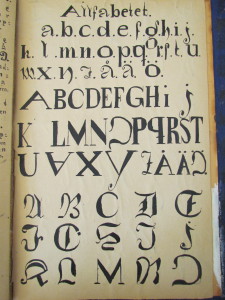 Alfabetet.
a.b.c.d.e.f.g.h.i.j.
k.l.m.n.o.p.q.r.s.t.u
v.x.y.z.å.ä.ö.
ABCDEFGHIJ
KLMNOPQRST
UVXYZÅÄÖ
A B C D E
F G H I J
K L M N O